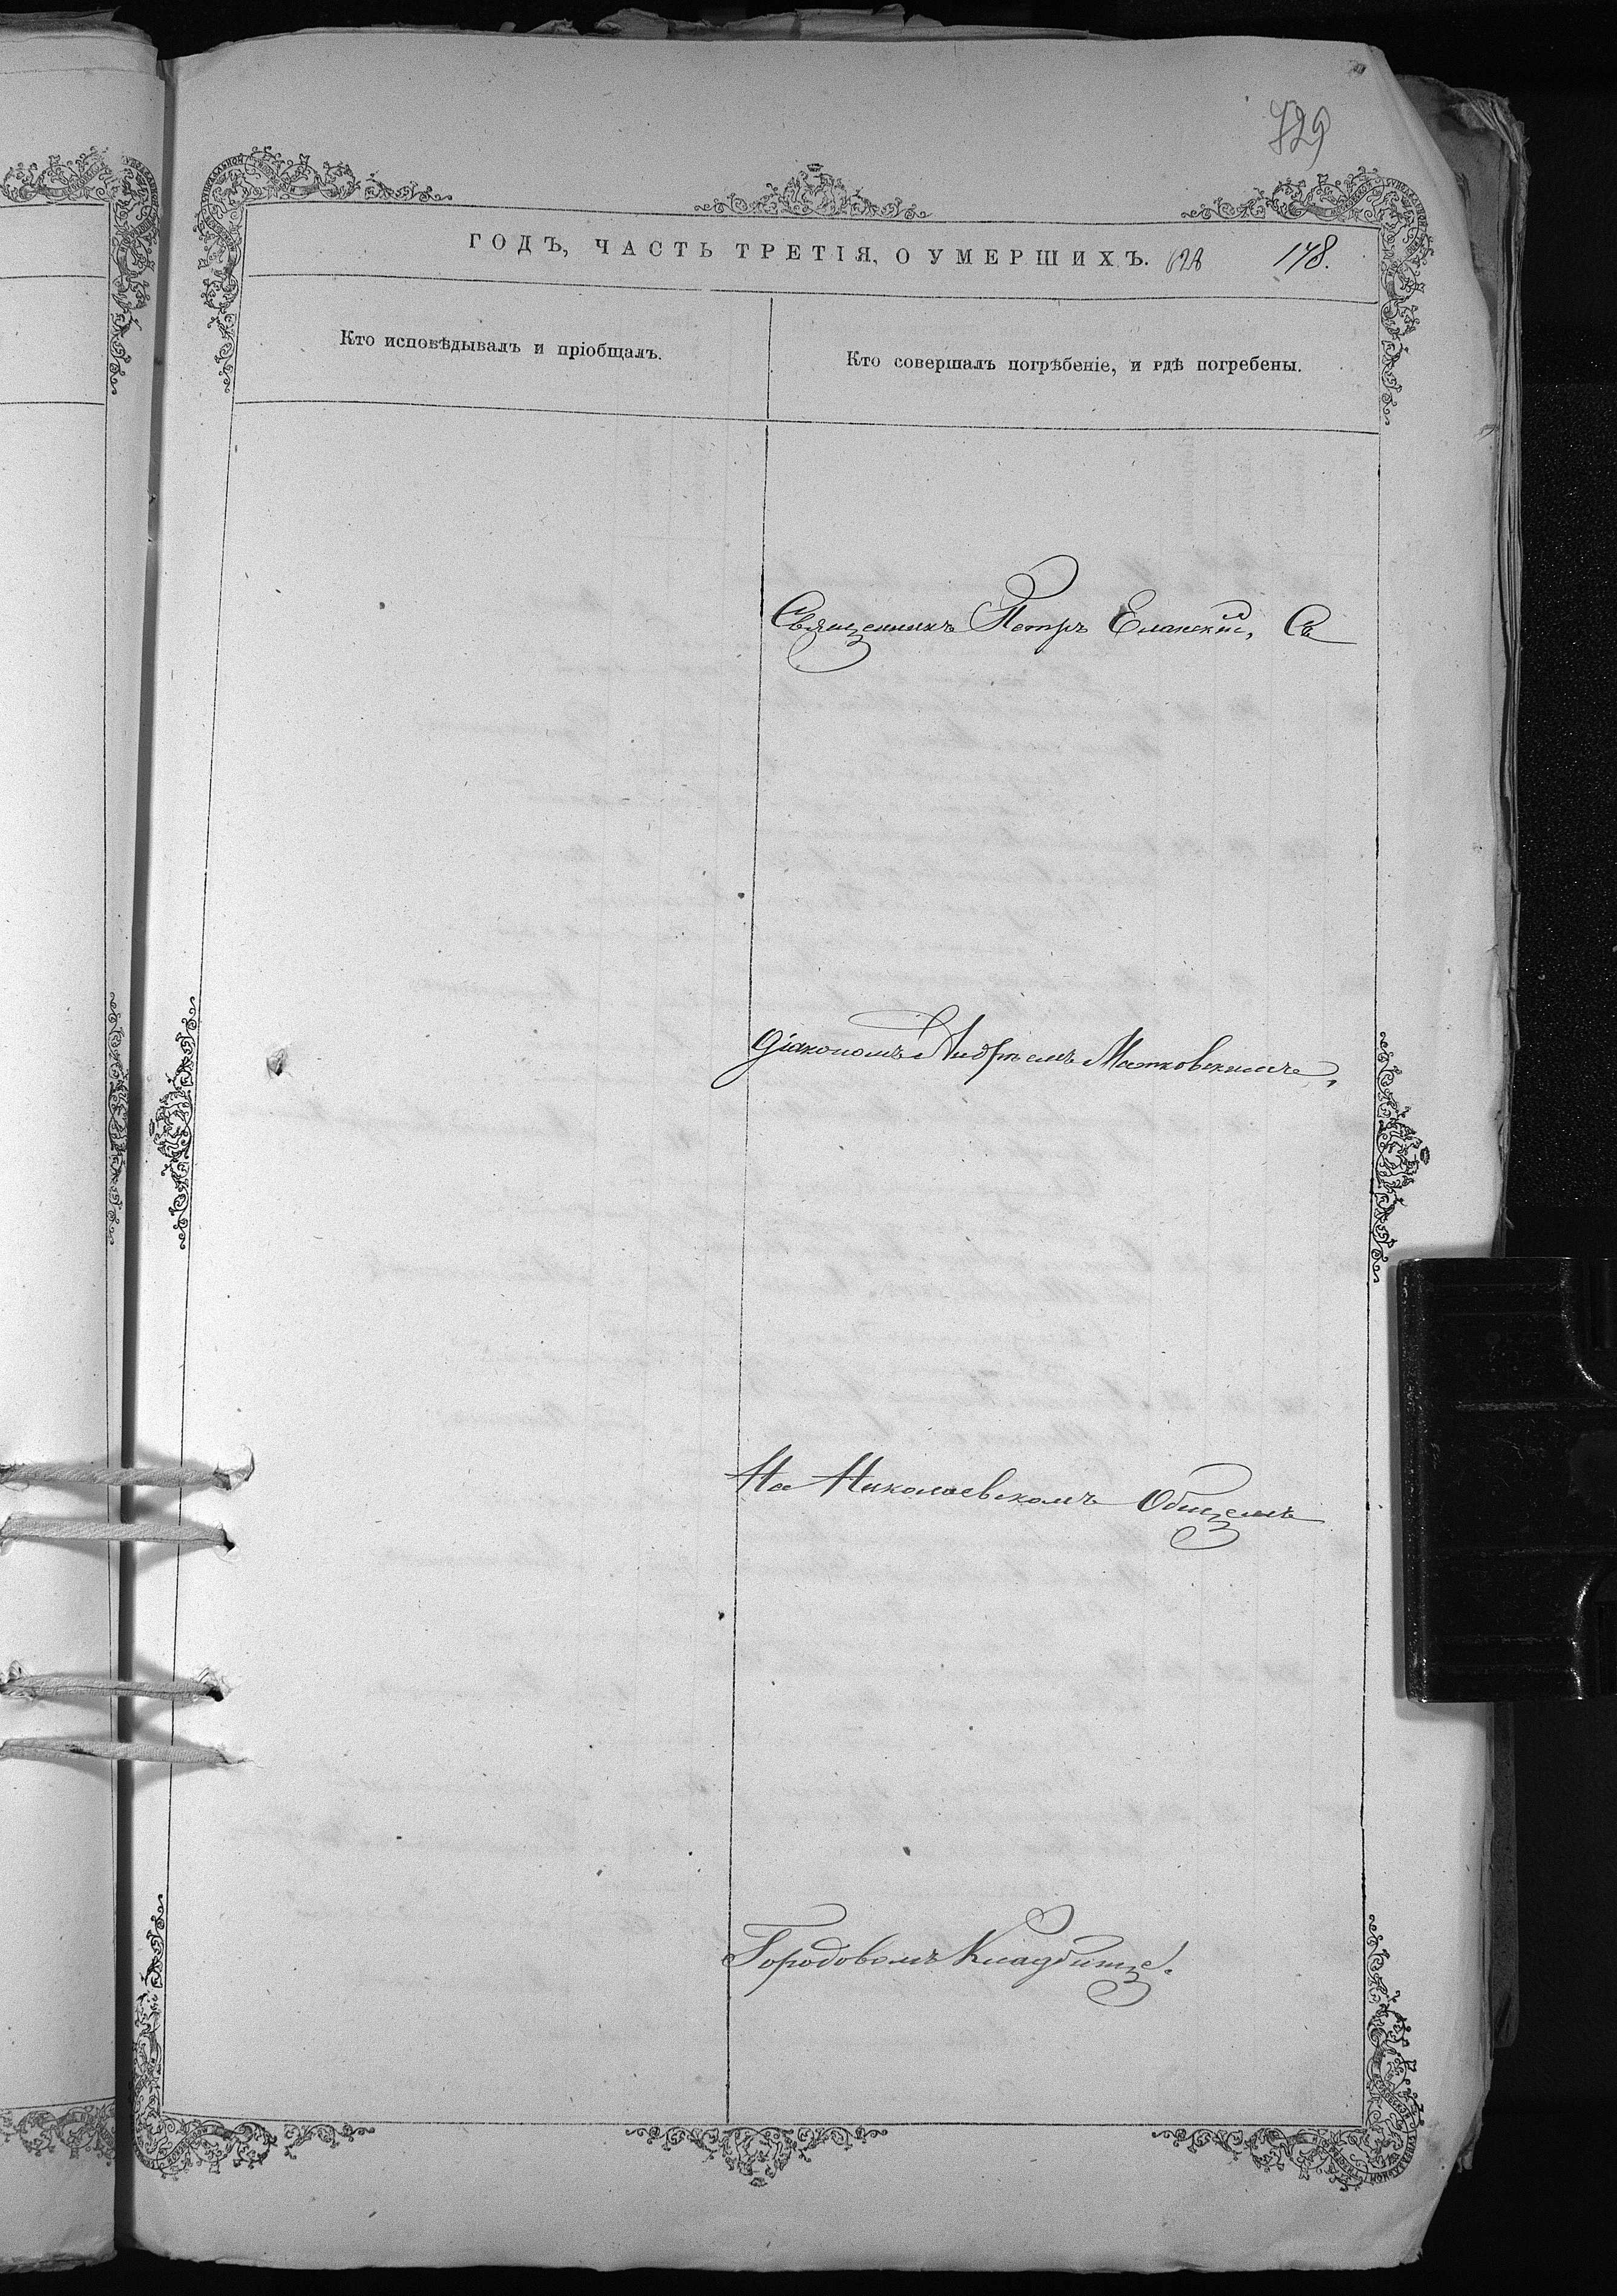 729
ГОДЪ, ЧАСТЬ ТРЕТІЯ, О УМЕРШИХЪ. 628 178.
Кто исповѣдывалъ и пріобщалъ.
Кто совершалъ погрѣбеніе, и гдѣ погребены.
Священникъ Петръ Еланскій, Съ
діакономъ Андреемъ Матковскимъ,
На Николаевскомъ Общемъ
Городовомъ Кладбищѣ.